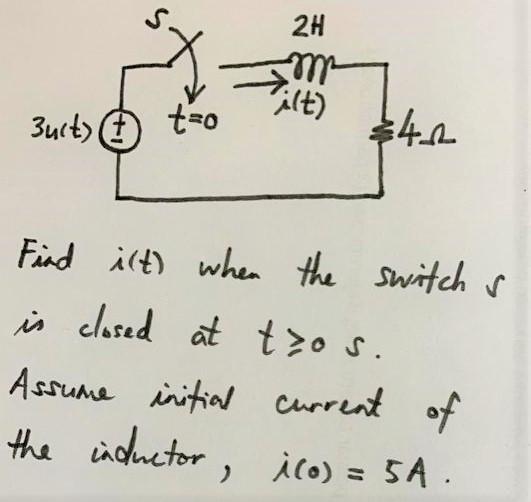 S
2H
i(t)
t=0
3u(t)
+
4Ω
Find i(t) when the switch s
is closed at t≥0 s.
Assume initial current of
the inductor, i(0) = 5A.